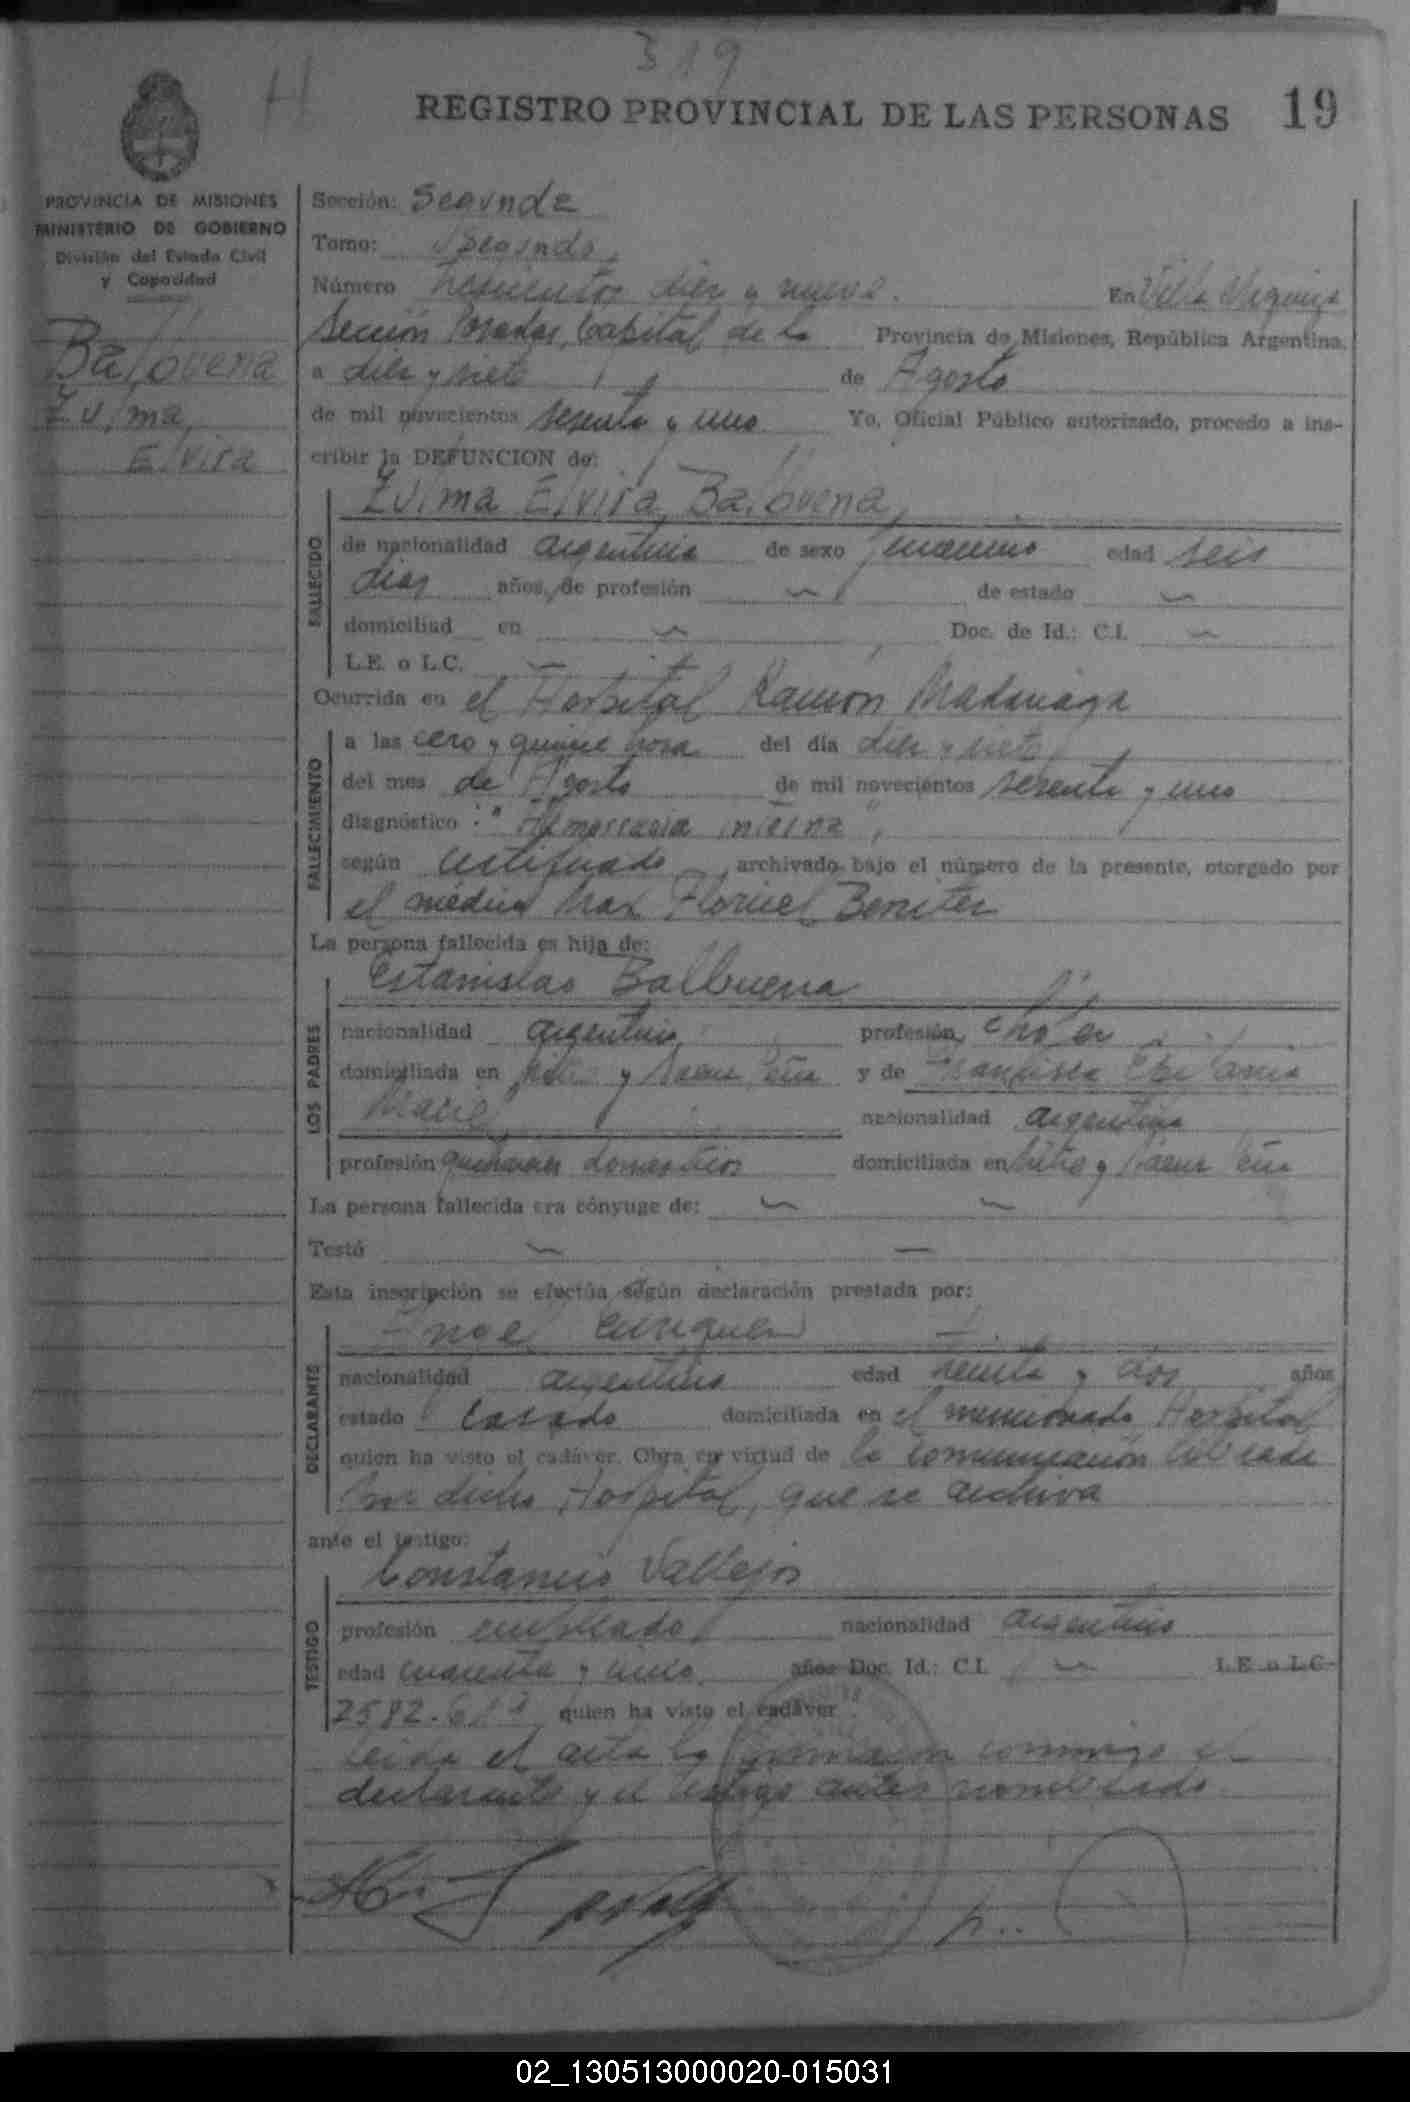 319
H
REGISTRO PROVINCIAL DE LAS PERSONAS 19
PROVINCIA DE MISIONES
MINISTERIO DE GOBIERNO
División del Estado Civil
y Capacidad
Balbuena
Zulma
Elvira
Sección: Segunda
Tomo: Segundo
Número trescientos diez y nueve. En Villa Urquiza
Sección Posadas, Capital de la Provincia de Misiones, República Argentina,
a diez y siete de Agosto
de mil novecientos sesenta y uno Yo, Oficial Público autorizado, procedo a ins-
cribir la DEFUNCION de:
Zulma Elvira Balbuena,
FALLECIDO
de nacionalidad argentina de sexo femenino edad seis
dias años, de profesión de estado
domiciliad en Doc. de Id.: C.I.
L.E. o L.C.
Ocurrida en el Hospital Ramón Madariaga
FALLECIMIENTO
a las cero y quince hora del día diez y siete
del mes de Agosto de mil novecientos sesenta y uno
diagnóstico: "Hemorragia interna",
según certificado archivado bajo el número de la presente, otorgado por
el médico Max Benitez
La persona fallecida es hija de:
Estanislao Balbuena
LOS PADRES
nacionalidad argentino profesión chofer
domiciliada en Mitre y Saenz Peña y de Francisca Epifania
nacionalidad argentina
profesión quehaceres domesticos domiciliada en Mitre y Saenz Peña
La persona fallecida era cónyuge de:
Testó
Esta inscripción se efectúa según declaración prestada por:
DECLARANTE
nacionalidad argentino edad treinta y dos años
estado casado domiciliada en el mencionado Hospital
quien ha visto el cadáver. Obra en virtud de la comunicación librada
por dicho Hospital, que se archiva
ante el testigo:
Constancio Vallejos
TESTIGO
profesión empleado nacionalidad argentino
edad cuarenta y cinco años Doc. Id.: C.I. L.E. o L.C.
quien ha visto el cadáver.
Leida el acta la firman conmigo el
declarante y el testigo antes nombrado.
02_130513000020-015031